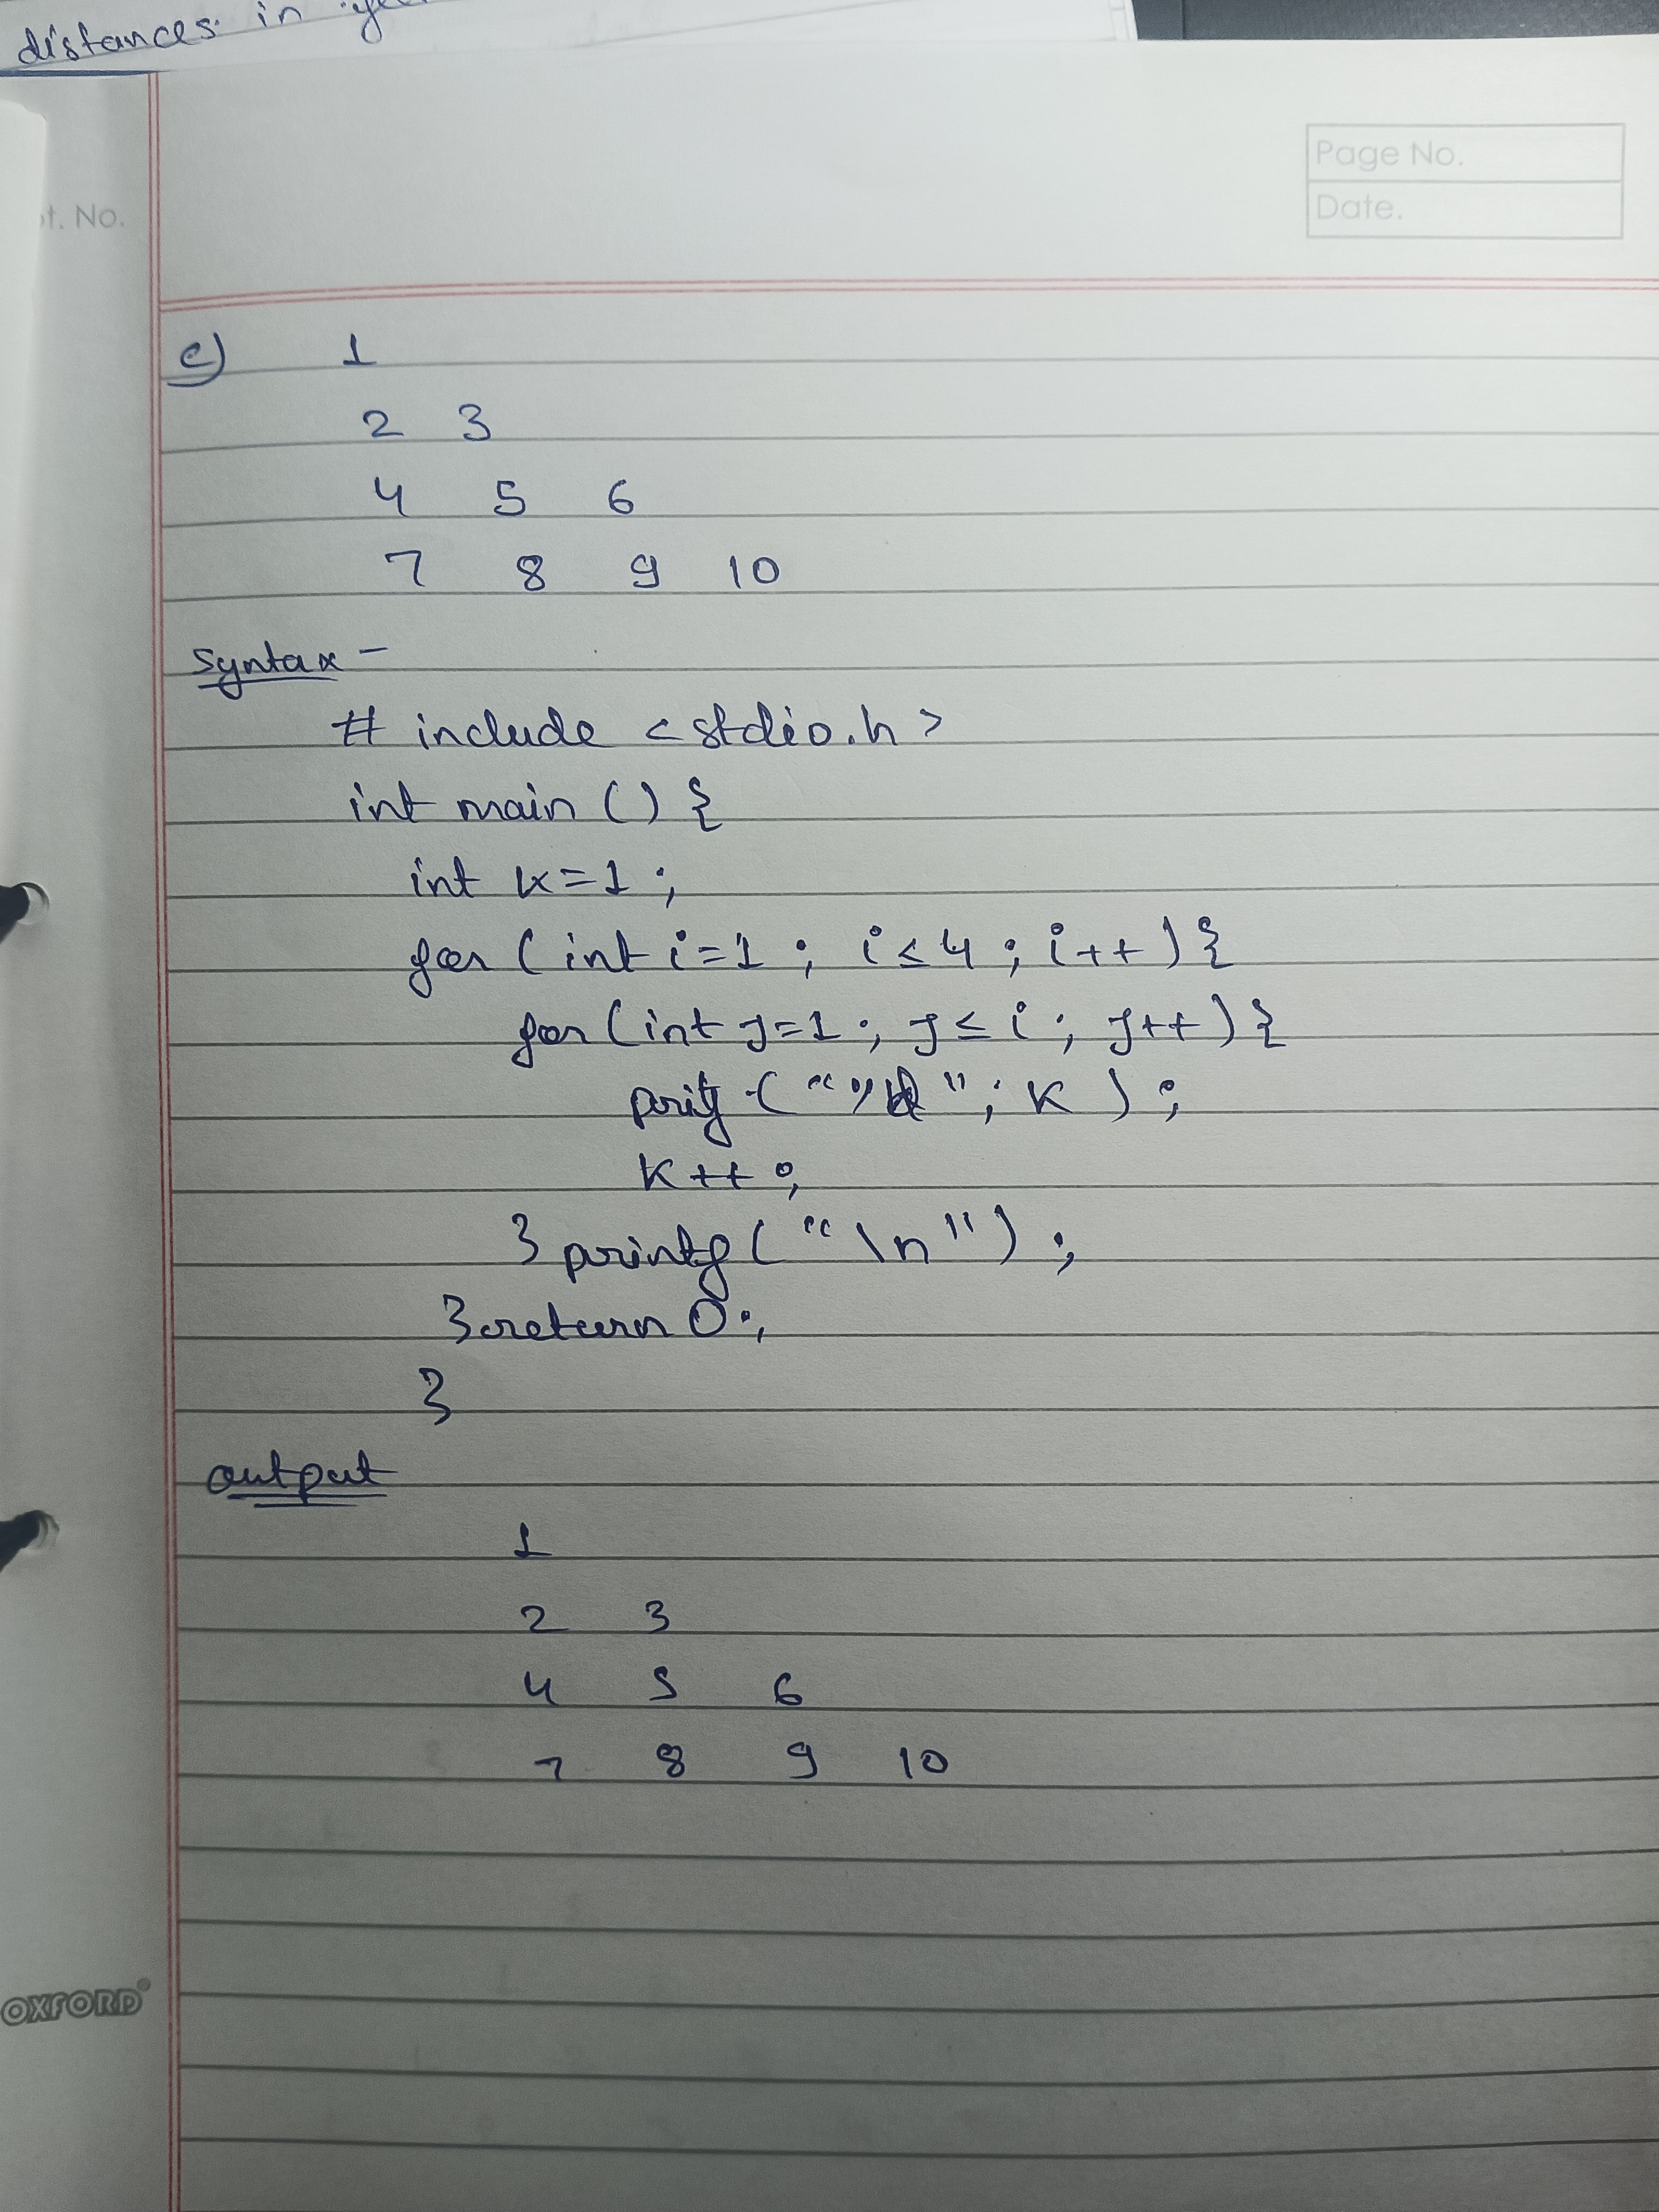 distances in
Page No.
Date.
t. No.
c) 1
2 3
4 5 6
7 8 9 10
Syntax -
# include <stdio.h>
int main () {
int k=1 ;
for ( int i=1 ; i≤4 ; i++ ) {
for (int j=1 ; j≤i ; j++ ) {
("%d" ; K ) ;
K++ ;
} printf ( "\n" ) ;
} return 0 ;
}
output
1
2 3
4 5 6
7 8 9 10
OXFORD